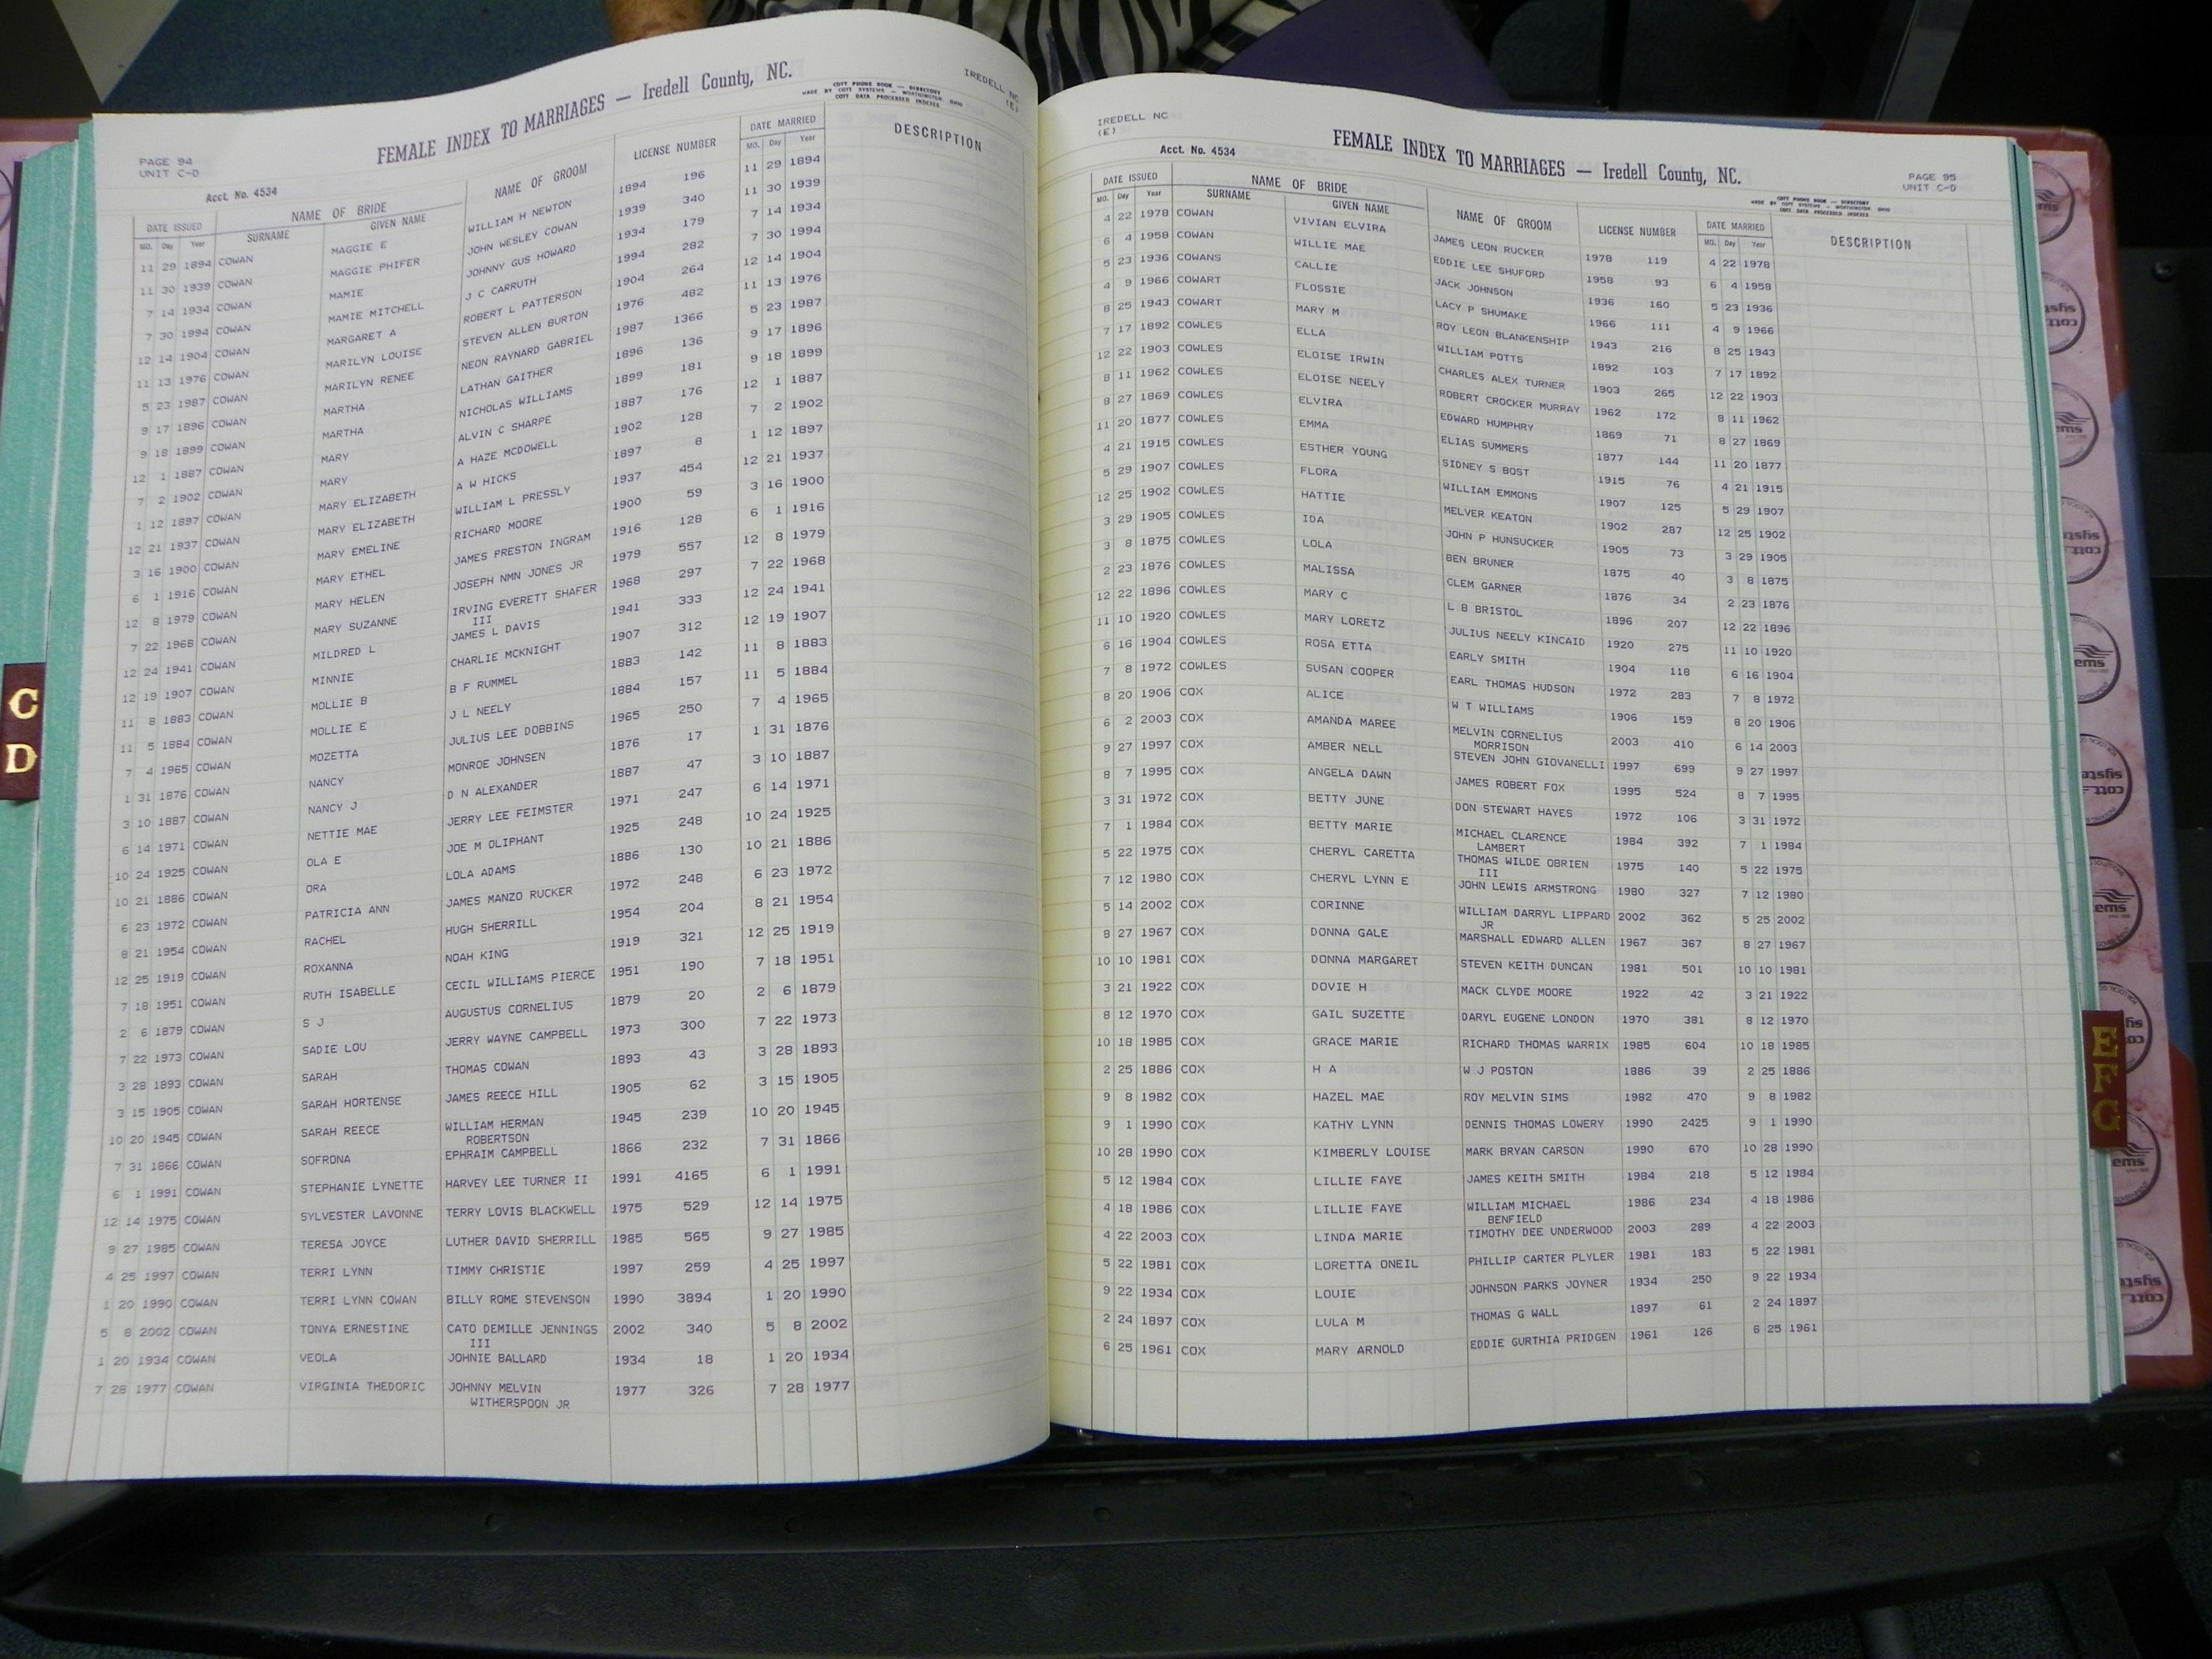 PAGE 94
UNIT C-D
FEMALE INDEX TO MARRIAGES — Iredell County, NC.
COTT PHONE BOOK — DIRECTORY
MADE BY COTT SYSTEMS — WORTHINGTON, OHIO
COTT DATA PROCESSED INDEXES
IREDELL NC
(E)
Acct. No. 4534
DATE ISSUED NAME OF BRIDE NAME OF GROOM LICENSE NUMBER DATE MARRIED DESCRIPTION
MO. Day Year SURNAME GIVEN NAME MO. Day Year
11 29 1894 COWAN MAGGIE E WILLIAM H NEWTON 1894 196 11 29 1894
11 30 1939 COWAN MAGGIE PHIFER JOHN WESLEY COWAN 1939 340 11 30 1939
7 14 1934 COWAN MAMIE JOHNNY GUS HOWARD 1934 179 7 14 1934
7 30 1994 COWAN MAMIE MITCHELL J C CARRUTH 1994 282 7 30 1994
12 14 1904 COWAN MARGARET A ROBERT L PATTERSON 1904 264 12 14 1904
11 13 1976 COWAN MARILYN LOUISE STEVEN ALLEN BURTON 1976 482 11 13 1976
5 23 1987 COWAN MARILYN RENEE NEON RAYNARD GABRIEL 1987 1366 5 23 1987
9 17 1896 COWAN MARTHA LATHAN GAITHER 1896 136 9 17 1896
9 18 1899 COWAN MARTHA NICHOLAS WILLIAMS 1899 181 9 18 1899
12 1 1887 COWAN MARY ALVIN C SHARPE 1887 176 12 1 1887
7 2 1902 COWAN MARY A HAZE MCDOWELL 1902 128 7 2 1902
1 12 1897 COWAN MARY ELIZABETH A W HICKS 1897 8 1 12 1897
12 21 1937 COWAN MARY ELIZABETH WILLIAM L PRESSLY 1937 454 12 21 1937
3 16 1900 COWAN MARY EMELINE RICHARD MOORE 1900 59 3 16 1900
6 1 1916 COWAN MARY ETHEL JAMES PRESTON INGRAM 1916 128 6 1 1916
12 8 1979 COWAN MARY HELEN JOSEPH NMN JONES JR 1979 557 12 8 1979
7 22 1968 COWAN MARY SUZANNE IRVING EVERETT SHAFER 1968 297 7 22 1968
III
12 24 1941 COWAN MILDRED L JAMES L DAVIS 1941 333 12 24 1941
12 19 1907 COWAN MINNIE CHARLIE MCKNIGHT 1907 312 12 19 1907
11 8 1883 COWAN MOLLIE B B F RUMMEL 1883 142 11 8 1883
11 5 1884 COWAN MOLLIE E J L NEELY 1884 157 11 5 1884
7 4 1965 COWAN MOZETTA JULIUS LEE DOBBINS 1965 250 7 4 1965
1 31 1876 COWAN NANCY MONROE JOHNSEN 1876 17 1 31 1876
3 10 1887 COWAN NANCY J D N ALEXANDER 1887 47 3 10 1887
6 14 1971 COWAN NETTIE MAE JERRY LEE FEIMSTER 1971 247 6 14 1971
10 24 1925 COWAN OLA E JOE M OLIPHANT 1925 248 10 24 1925
10 21 1886 COWAN ORA LOLA ADAMS 1886 130 10 21 1886
6 23 1972 COWAN PATRICIA ANN JAMES MANZO RUCKER 1972 248 6 23 1972
8 21 1954 COWAN RACHEL HUGH SHERRILL 1954 204 8 21 1954
12 25 1919 COWAN ROXANNA NOAH KING 1919 321 12 25 1919
7 18 1951 COWAN RUTH ISABELLE CECIL WILLIAMS PIERCE 1951 190 7 18 1951
2 6 1879 COWAN S J AUGUSTUS CORNELIUS 1879 20 2 6 1879
7 22 1973 COWAN SADIE LOU JERRY WAYNE CAMPBELL 1973 300 7 22 1973
3 28 1893 COWAN SARAH THOMAS COWAN 1893 43 3 28 1893
3 15 1905 COWAN SARAH HORTENSE JAMES REECE HILL 1905 62 3 15 1905
10 20 1945 COWAN SARAH REECE WILLIAM HERMAN 1945 239 10 20 1945
ROBERTSON
7 31 1866 COWAN SOFRONA EPHRAIM CAMPBELL 1866 232 7 31 1866
6 1 1991 COWAN STEPHANIE LYNETTE HARVEY LEE TURNER II 1991 4165 6 1 1991
12 14 1975 COWAN SYLVESTER LAVONNE TERRY LOVIS BLACKWELL 1975 529 12 14 1975
9 27 1985 COWAN TERESA JOYCE LUTHER DAVID SHERRILL 1985 565 9 27 1985
4 25 1997 COWAN TERRI LYNN TIMMY CHRISTIE 1997 259 4 25 1997
1 20 1990 COWAN TERRI LYNN COWAN BILLY ROME STEVENSON 1990 3894 1 20 1990
5 8 2002 COWAN TONYA ERNESTINE CATO DEMILLE JENNINGS 2002 340 5 8 2002
III
1 20 1934 COWAN VEOLA JOHNIE BALLARD 1934 18 1 20 1934
7 28 1977 COWAN VIRGINIA THEDORIC JOHNNY MELVIN 1977 326 7 28 1977
WITHERSPOON JR
C
D
IREDELL NC
(E)
Acct. No. 4534
FEMALE INDEX TO MARRIAGES — Iredell County, NC.
PAGE 95
UNIT C-D
COTT PHONE BOOK — DIRECTORY
MADE BY COTT SYSTEMS — WORTHINGTON, OHIO
COTT DATA PROCESSED INDEXES
DATE ISSUED NAME OF BRIDE NAME OF GROOM LICENSE NUMBER DATE MARRIED DESCRIPTION
MO. Day Year SURNAME GIVEN NAME MO. Day Year
4 22 1978 COWAN VIVIAN ELVIRA JAMES LEON RUCKER 1978 119 4 22 1978
6 4 1958 COWAN WILLIE MAE EDDIE LEE SHUFORD 1958 93 6 4 1958
5 23 1936 COWANS CALLIE JACK JOHNSON 1936 160 5 23 1936
4 9 1966 COWART FLOSSIE LACY P SHUMAKE 1966 111 4 9 1966
8 25 1943 COWART MARY M ROY LEON BLANKENSHIP 1943 216 8 25 1943
7 17 1892 COWLES ELLA WILLIAM POTTS 1892 103 7 17 1892
12 22 1903 COWLES ELOISE IRWIN CHARLES ALEX TURNER 1903 265 12 22 1903
8 11 1962 COWLES ELOISE NEELY ROBERT CROCKER MURRAY 1962 172 8 11 1962
8 27 1869 COWLES ELVIRA EDWARD HUMPHRY 1869 71 8 27 1869
11 20 1877 COWLES EMMA ELIAS SUMMERS 1877 144 11 20 1877
4 21 1915 COWLES ESTHER YOUNG SIDNEY S BOST 1915 76 4 21 1915
5 29 1907 COWLES FLORA WILLIAM EMMONS 1907 125 5 29 1907
12 25 1902 COWLES HATTIE MELVER KEATON 1902 287 12 25 1902
3 29 1905 COWLES IDA JOHN P HUNSUCKER 1905 73 3 29 1905
3 8 1875 COWLES LOLA BEN BRUNER 1875 40 3 8 1875
2 23 1876 COWLES MALISSA CLEM GARNER 1876 34 2 23 1876
12 22 1896 COWLES MARY C L B BRISTOL 1896 207 12 22 1896
11 10 1920 COWLES MARY LORETZ JULIUS NEELY KINCAID 1920 275 11 10 1920
6 16 1904 COWLES ROSA ETTA EARLY SMITH 1904 118 6 16 1904
7 8 1972 COWLES SUSAN COOPER EARL THOMAS HUDSON 1972 283 7 8 1972
8 20 1906 COX ALICE W T WILLIAMS 1906 159 8 20 1906
6 2 2003 COX AMANDA MAREE MELVIN CORNELIUS 2003 410 6 14 2003
MORRISON
9 27 1997 COX AMBER NELL STEVEN JOHN GIOVANELLI 1997 699 9 27 1997
8 7 1995 COX ANGELA DAWN JAMES ROBERT FOX 1995 524 8 7 1995
3 31 1972 COX BETTY JUNE DON STEWART HAYES 1972 106 3 31 1972
7 1 1984 COX BETTY MARIE MICHAEL CLARENCE 1984 392 7 1 1984
LAMBERT
5 22 1975 COX CHERYL CARETTA THOMAS WILDE OBRIEN 1975 140 5 22 1975
III
7 12 1980 COX CHERYL LYNN E JOHN LEWIS ARMSTRONG 1980 327 7 12 1980
5 14 2002 COX CORINNE WILLIAM DARRYL LIPPARD 2002 362 5 25 2002
JR
8 27 1967 COX DONNA GALE MARSHALL EDWARD ALLEN 1967 367 8 27 1967
10 10 1981 COX DONNA MARGARET STEVEN KEITH DUNCAN 1981 501 10 10 1981
3 21 1922 COX DOVIE H MACK CLYDE MOORE 1922 42 3 21 1922
8 12 1970 COX GAIL SUZETTE DARYL EUGENE LONDON 1970 381 8 12 1970
10 18 1985 COX GRACE MARIE RICHARD THOMAS WARRIX 1985 604 10 18 1985
2 25 1886 COX H A W J POSTON 1886 39 2 25 1886
9 8 1982 COX HAZEL MAE ROY MELVIN SIMS 1982 470 9 8 1982
9 1 1990 COX KATHY LYNN DENNIS THOMAS LOWERY 1990 2425 9 1 1990
10 28 1990 COX KIMBERLY LOUISE MARK BRYAN CARSON 1990 670 10 28 1990
5 12 1984 COX LILLIE FAYE JAMES KEITH SMITH 1984 218 5 12 1984
4 18 1986 COX LILLIE FAYE WILLIAM MICHAEL 1986 234 4 18 1986
BENFIELD
4 22 2003 COX LINDA MARIE TIMOTHY DEE UNDERWOOD 2003 289 4 22 2003
5 22 1981 COX LORETTA ONEIL PHILLIP CARTER PLYLER 1981 183 5 22 1981
9 22 1934 COX LOUIE JOHNSON PARKS JOYNER 1934 250 9 22 1934
2 24 1897 COX LULA M THOMAS G WALL 1897 61 2 24 1897
6 25 1961 COX MARY ARNOLD EDDIE GURTHIA PRIDGEN 1961 126 6 25 1961
E
F
G